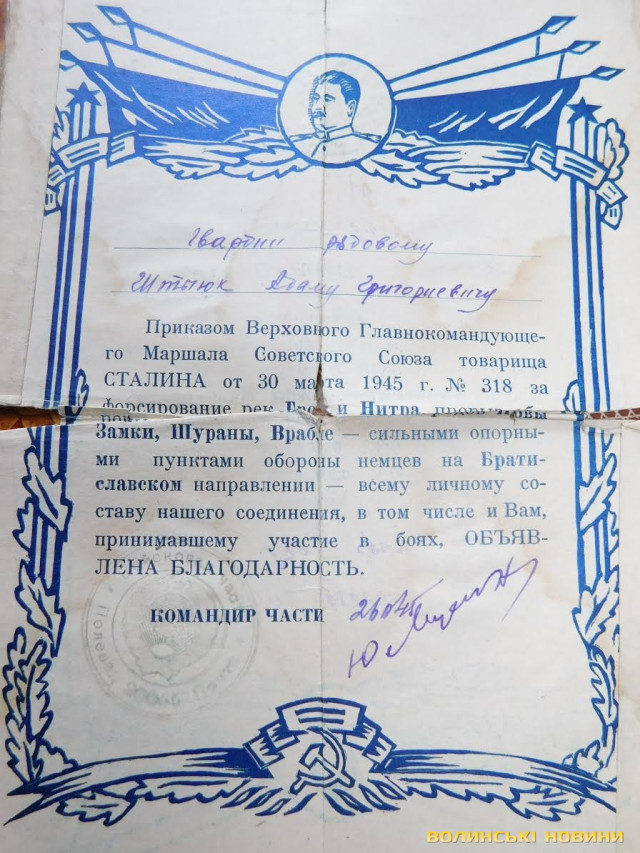 Гвардии рядовому
Штынюк Адаму Григориевичу
Приказом Верховного Главнокомандующе-
го Маршала Советского Союза товарища
СТАЛИНА от 30 марта 1945 г. № 318 за
форсирование рек и Нитра
Замки, Шураны, Врабле — сильными опорны-
ми пунктами обороны немцев на Брати-
славском направлении — всему личному со-
ставу нашего соединения, в том числе и Вам,
принимавшему участие в боях, ОБЪЯВ-
ЛЕНА БЛАГОДАРНОСТЬ.
КОМАНДИР ЧАСТИ
ВОЛИНСЬКІ НОВИНИ